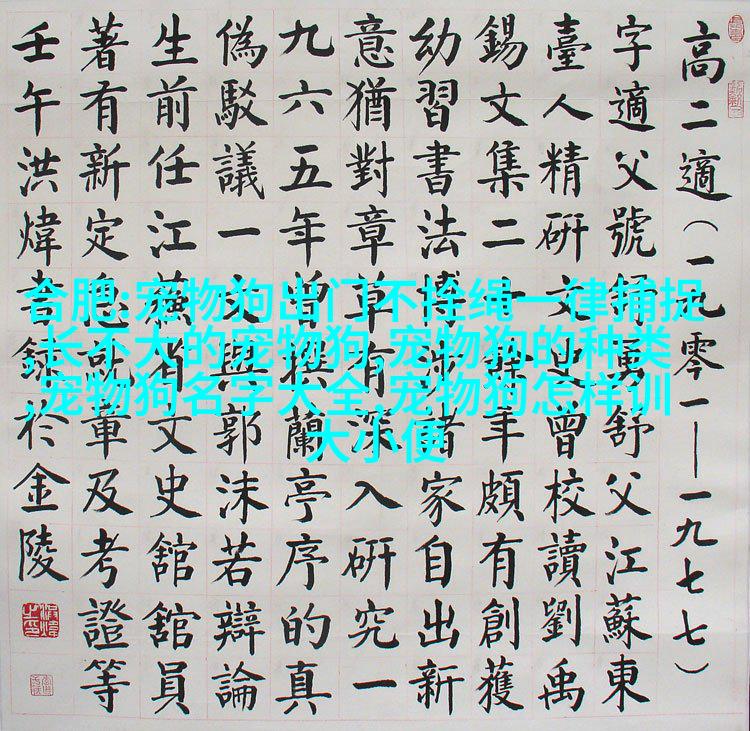 高二適（一九零一——一九七七）
字適父號勇舒父江蘇東
臺人精研文史曾校讀劉禹
錫文集二十餘年頗有創獲
幼習書法博涉諸家自出新
意猶對章草有深入研究一
九六五年曾撰蘭亭序的真
偽駁議一文與郭沫若辯論
生前任江蘇省文史舘舘員
著有新定急就章及考證等
壬午洪煒書錄於金陵
合肥:宠物狗出门不拴绳一律捕捉
,长不大的宠物狗,宠物狗的种类
,宠物狗名字大全,宠物狗怎样训
大小便